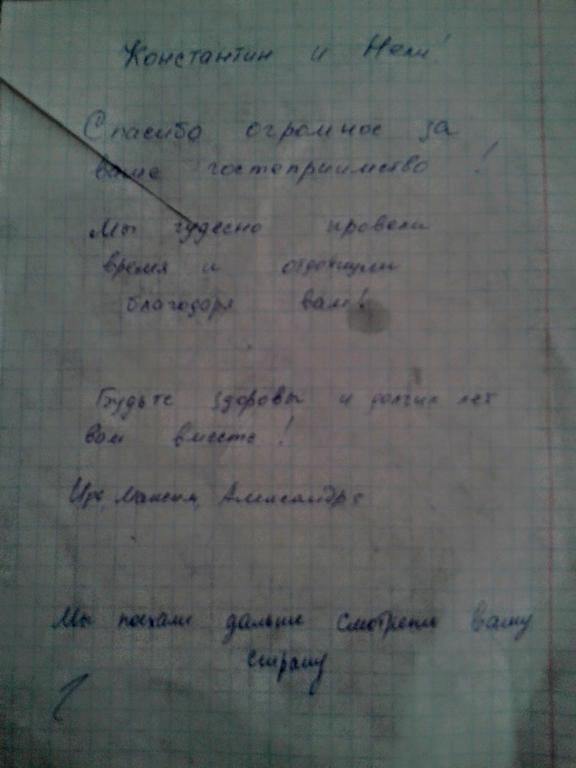 Константин и Нели!
Спасибо огромное за
ваше гостеприимство!
Мы чудесно провели
время и отдохнули
благодаря вам!
Будьте здоровы и долгих лет
вам вместе!
Максим, Александра
Мы поехали дальше смотреть вашу
страну